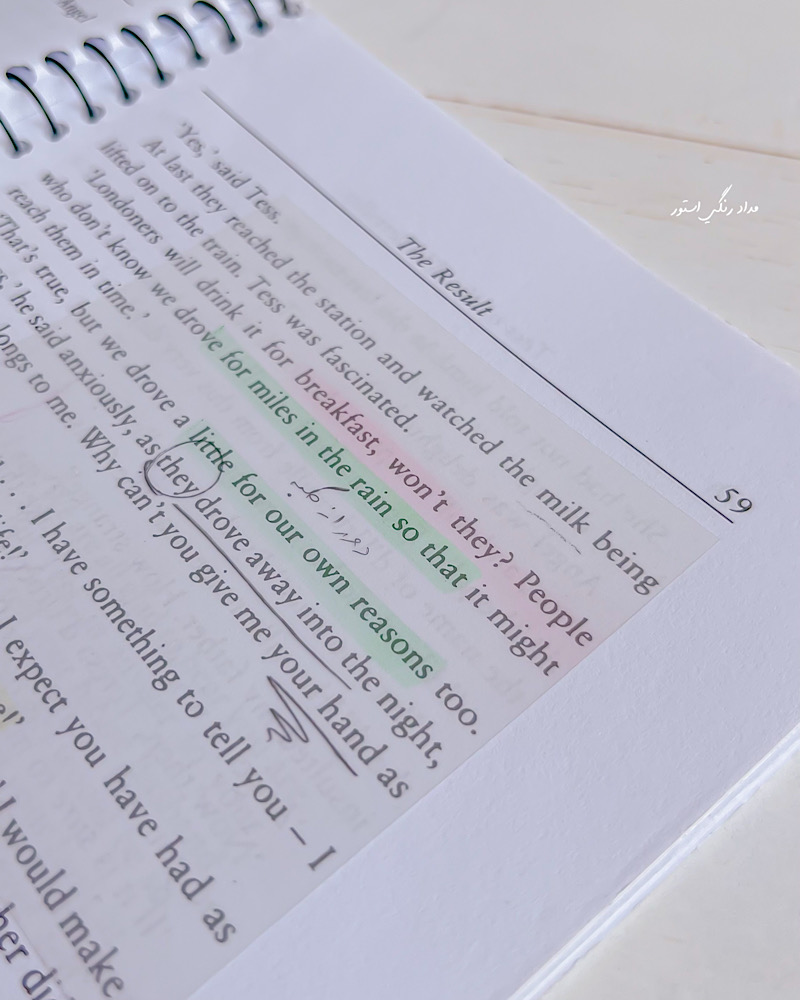 Angel
The Result
59
'Yes,' said Tess.
At last they reached the station and watched the milk being
lifted on to the train. Tess was fascinated.
'Londoners will drink it for breakfast, won't they? People
who don't know we drove for miles in the rain so that it might
reach them in time.'
'That's true, but we drove a little for our own reasons too.
he said anxiously, as they drove away into the night,
longs to me. Why can't you give me your hand as
I have something to tell you – I
life!'
I expect you have had as
I would make
her
مداد رنگی استور